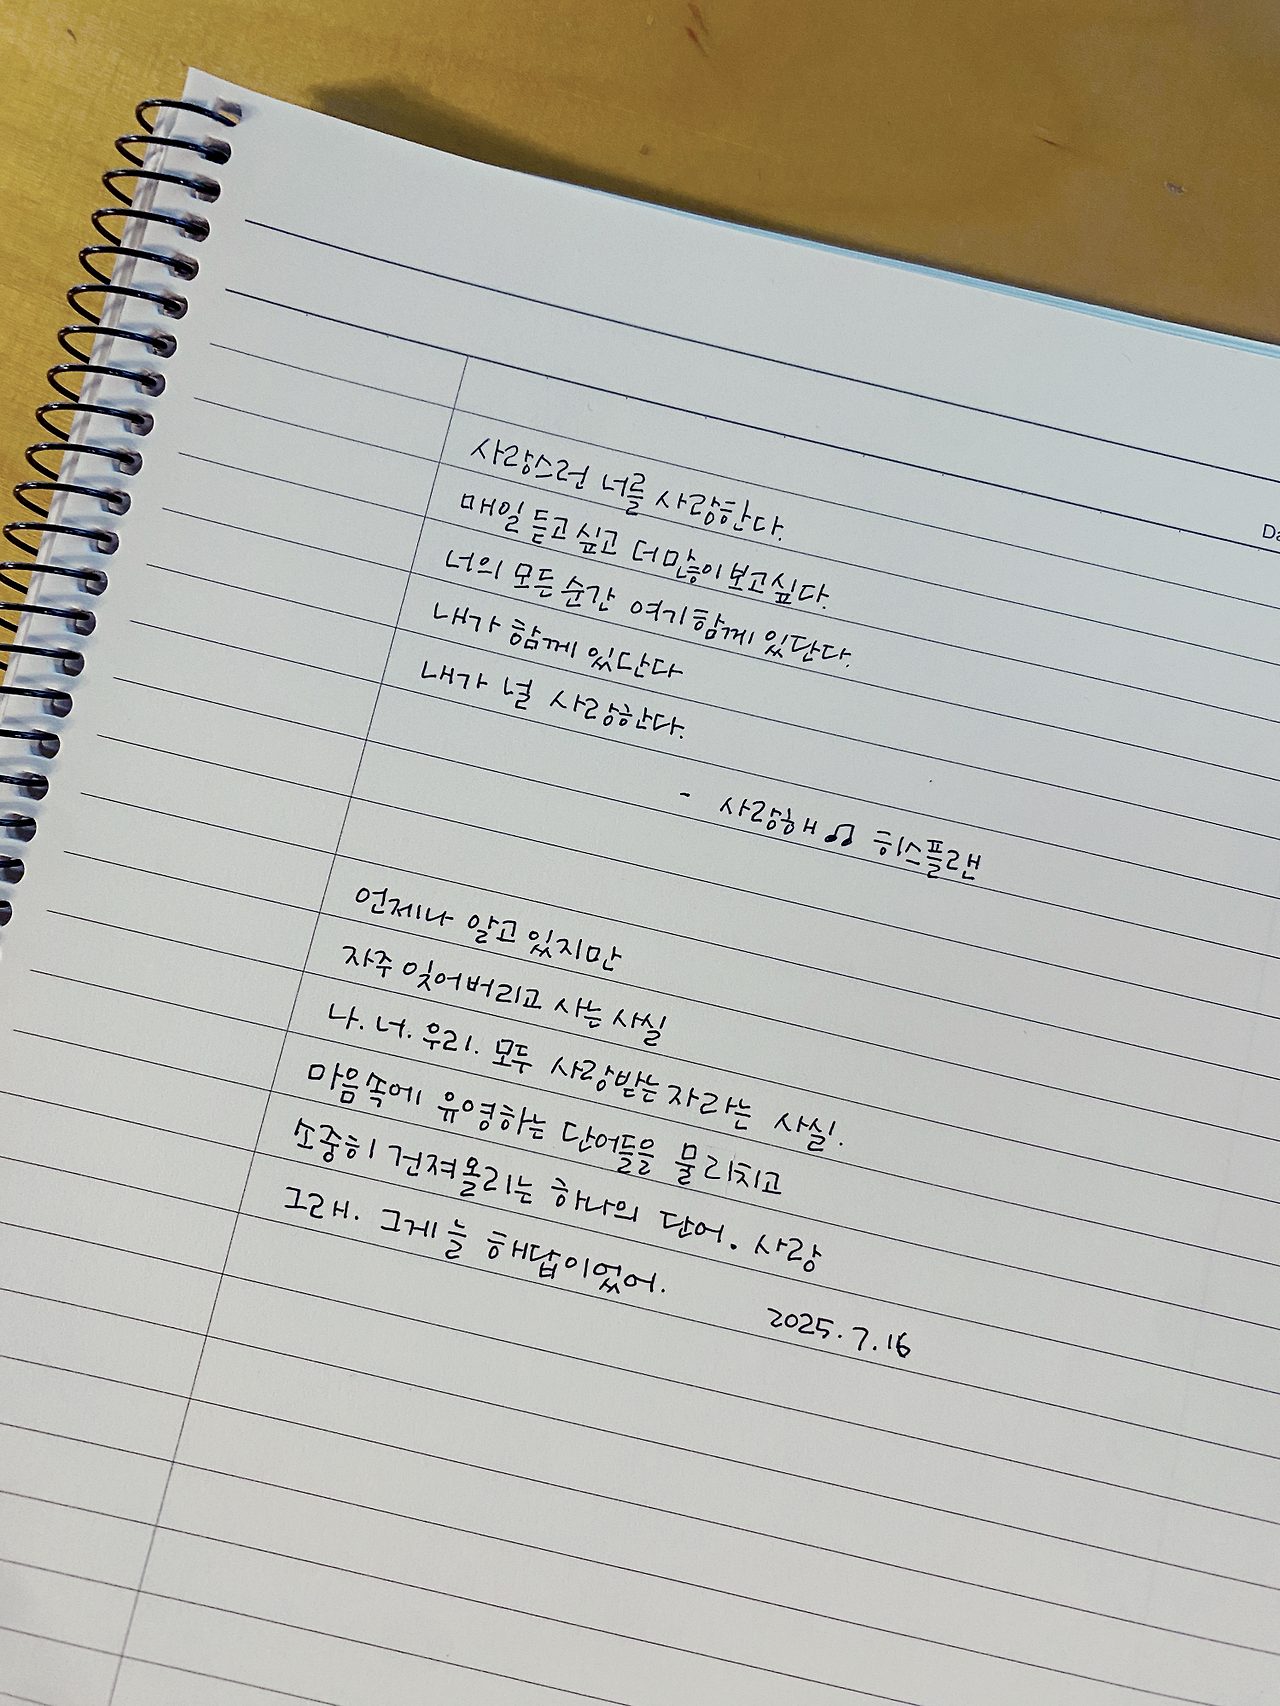 Da
사랑스런 너를 사랑한다.
매일 듣고싶고 더많이보고싶다.
너의 모든순간 여기함께있단다.
내가 함께있단다
내가 널 사랑한다.
- 사랑해♫ 히스플랜
언제나 알고있지만
자주 잊어버리고 사는 사실
나. 너. 우리. 모두 사랑받는자라는 사실.
마음속에 유영하는 단어들을 물리치고
소중히 건져올리는 하나의 단어. 사랑
그래. 그게 늘 해답이었어.
2025.7.16